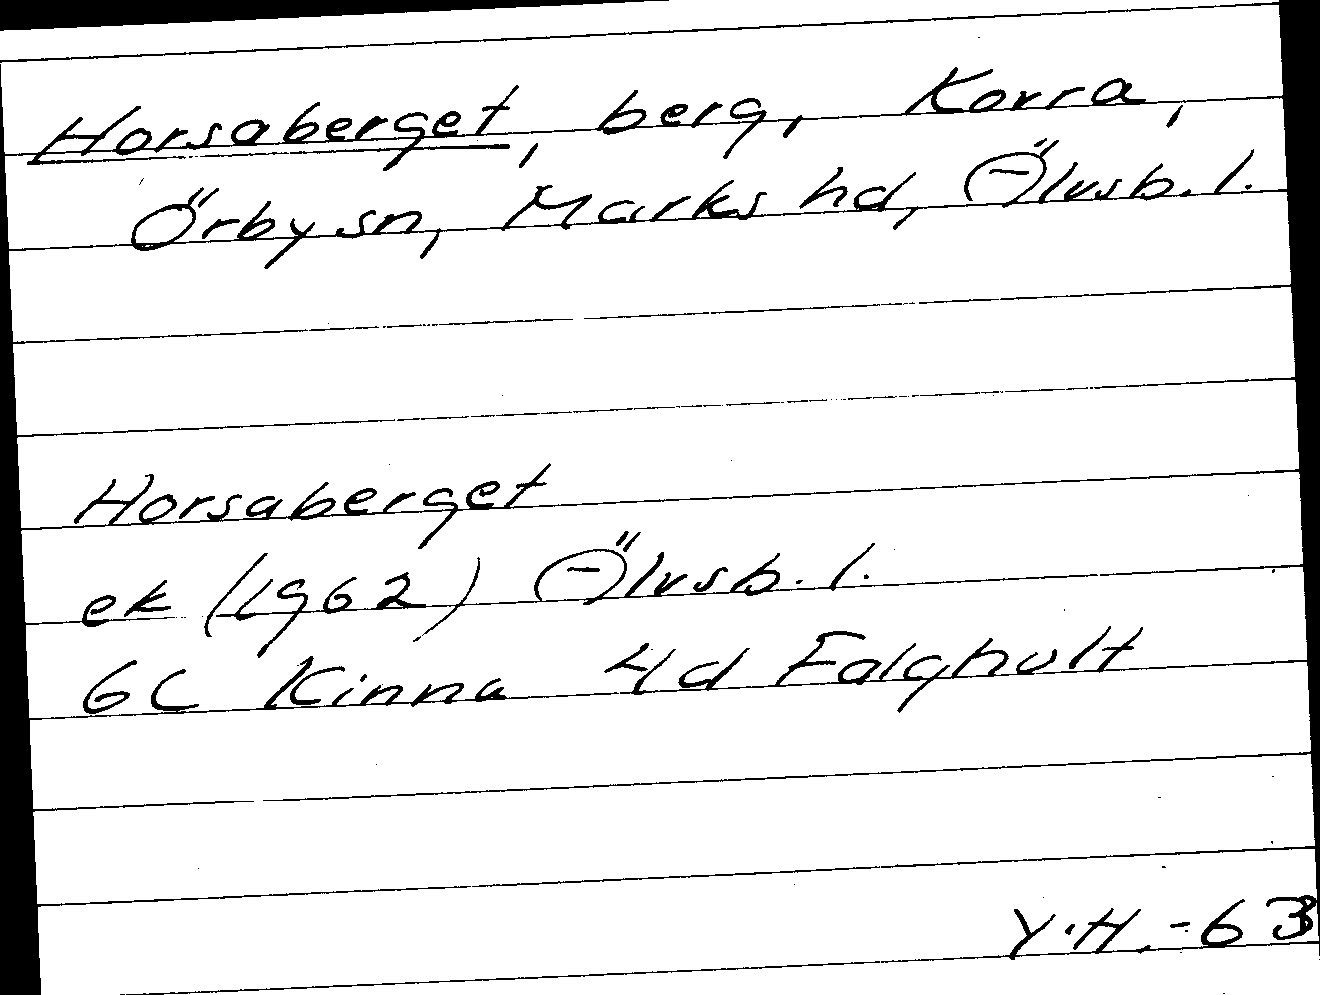 Horsaberget, berg, Korra,
Örby sn, Marks hd, Älvsb. l.
Horsaberget
ek (1962) Älvsb. l.
6C Kinna 4d Falghult
Y.H. -63